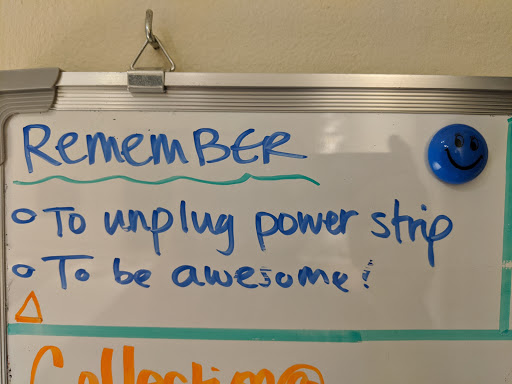 RememBER
To unplug power strip
To be awesome!